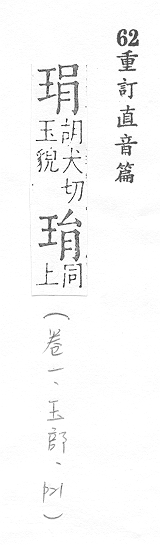 62重訂直音篇
琄
胡犬切
玉貌
同
上
(卷一、玉部、p21)